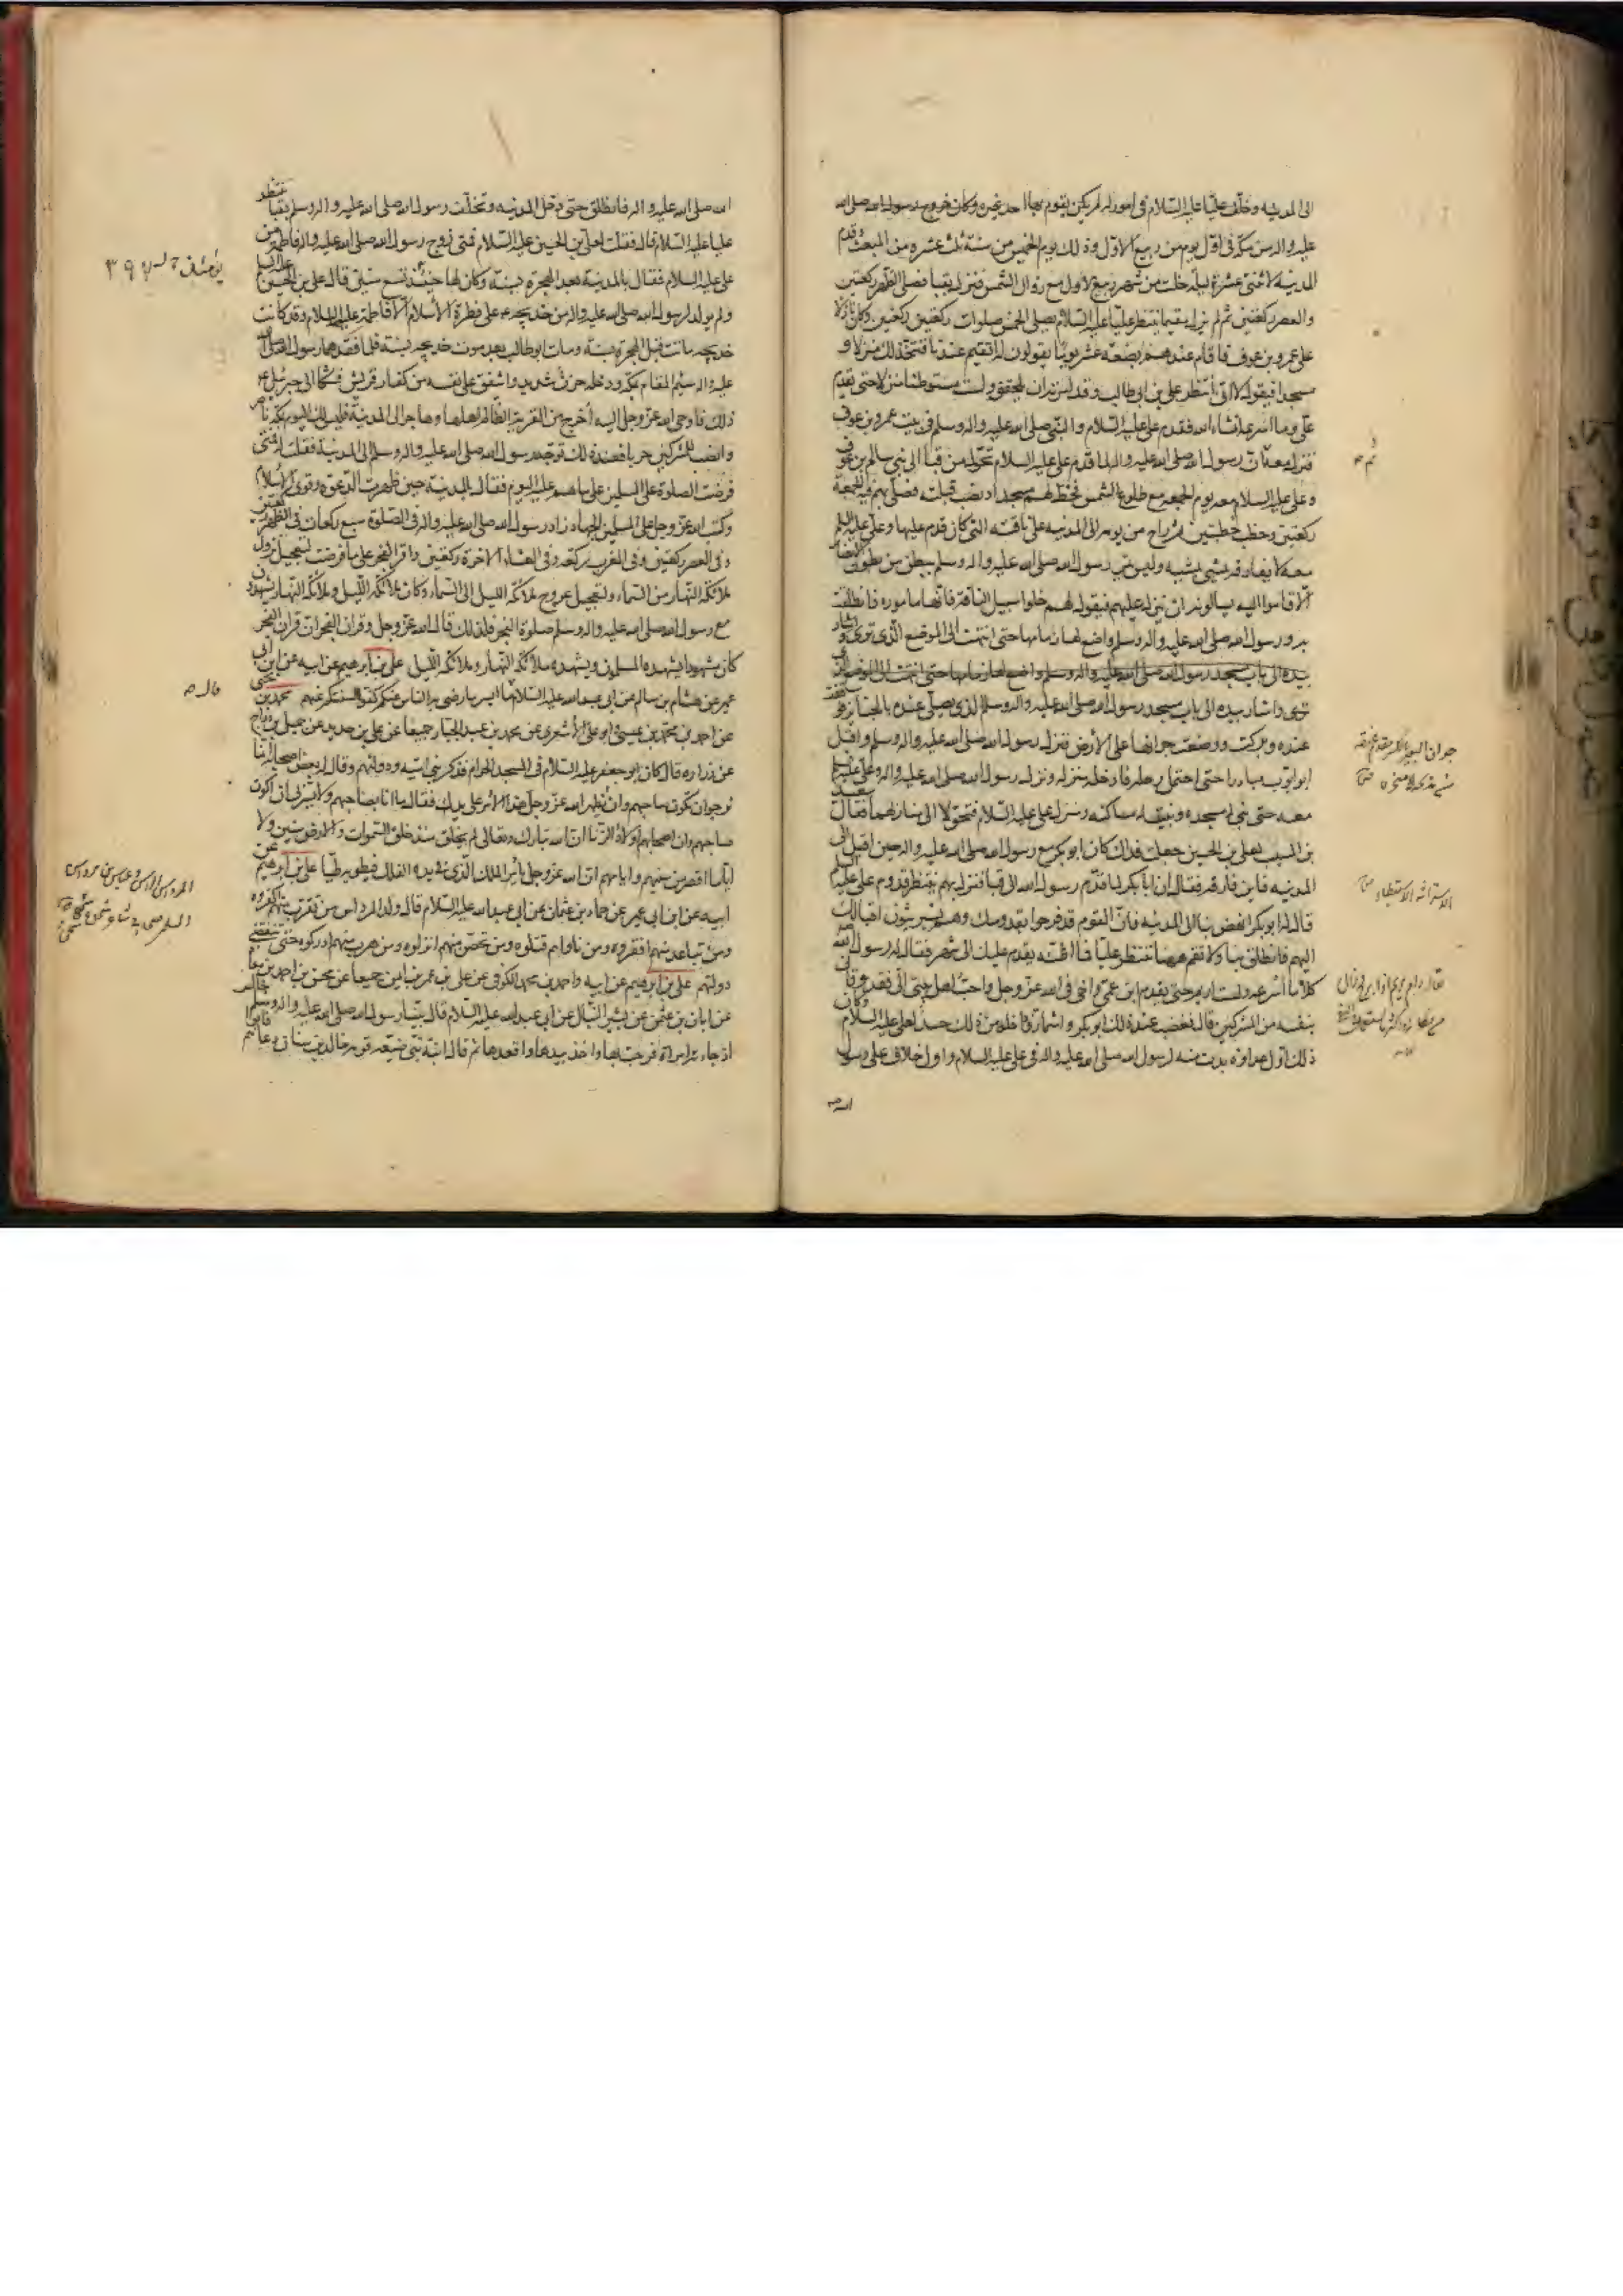 الى المدينه وخلّف عليّا عليه السّلام فى امور لم يكن يقوم بها احد غيره وكان خروج رسول الله صلى الله
عليه واله من مكّة فى اوّل يوم من ربيع الاوّل وذلك يوم الخميس من سنة ثلث عشره من المبعث وقدم
المدينة لاثنتى عشرة ليلة خلت من شهر ربيع الاول مع زوال الشمس فنزل بقبا فصلى الظهر ركعتين
والعصر ركعتين ثم لم يزل مقيما ينتظر عليّا عليه السّلام يصلى الخمس صلوات ركعتين ركعتين وكان نازلا
على عمرو بن عوف فاقام عندهم بضعة عشر يومًا يقولون له اتقيم عندنا فنتخذ لك منزلا و
مسجدا فيقول لا انّى انتظر على بن ابى طالب وقد امرته ان يلحقنى ولست مستوطنا منزلا حتى يقدم
علىّ وما اسرعه انشاء الله فقدم على عليه السّلام والنّبى صلى الله عليه واله وسلم فى بيت عمرو بن عوف
فنزل معه ثمّ انّ رسول الله صلى الله عليه واله لما قدم على عليه السلام تحوّل من قبا الى بنى سالم بن عوف
وعلى عليه السلام معه يوم الجمعه مع طلوع الشمس فخطّ لهم مسجدا ونصب قبلته فصلّى بهم فيه الجمعة
ركعتين وخطب خطبتين ثم راح من يومه الى المدينه على ناقته التى كان قدم عليها وعلىّ عليه السلم
معه لا يفارقه يمشى بمشيه وليس يمرّ رسول الله صلى الله عليه واله وسلم ببطن من بطون الانصار
الّا قاموا اليه يسالونه ان ينزل عليهم فيقول لهم خلوا سبيل النّاقة فانّها ماموره فانطلقت
به ورسول الله صلى الله عليه واله وسلم واضع لها زمامها حتى انتهت الى الموضع الّذى ترى واشار
بيده الى باب مسجد رسول الله صلى الله عليه واله وسلم واضع لها زمامها حتى انتهت الى الموضع الّذى
ترى واشار بيده الى باب مسجد رسول الله صلى الله عليه واله وسلم الذى يصلى عنده بالجنايز فوقفت
عنده وبركت ووضعت جرانها على الارض فنزل رسول الله صلى الله عليه واله وسلم واقبل
ابو ايّوب مبادرا حتى احتمل رحله فادخله منزله ونزل رسول الله صلى الله عليه واله وعلى عليه السلم
معه حتى بنى له مسجده وبنيت له مساكنه ومنزل على عليه السّلام فتحوّلا الى منازلهما فقال سعيد
بن المسيب لعلى بن الحسين جعلت فداك كان ابو بكر مع رسول الله صلى الله عليه واله حين اقبل الى
المدينه فاين فارقه فقال ان ابا بكر لما قدم رسول الله الى قبا فنزل بهم ينتظر قدوم على عليه السلم
قال له ابو بكر انهض بنا الى المدينه فانّ القوم قد فرحوا بقدومك وهم يستريثون اقبالك
اليهم فانطلق بنا ولا تقم ههنا تنتظر عليّا فما اظنّه يقدم عليك الى شهر فقال له رسول الله
كلا ما اسرعه ولست اريم حتى يقدم ابن عمّى واخى فى الله عزّ وجل واحبّ اهل بيتى الىّ فقد وقانى
بنفسه من المشركين قال فغضب عند ذلك ابو بكر واشمازّ وداخله من ذلك حسد لعلى عليه السلام وكان
ذلك اوّل عداوة بدت منه لرسول الله صلى الله عليه واله فى على عليه السلام واول خلاف على رسول
الله ص
ثم ص
جران البعير بالكسر مقدم عنقه
من مذبحه الى منحره ص
الاستراثه الاستبطاء ص
الله صلى الله عليه واله فانطلق حتى دخل المدينه وتخلّف رسول الله صلى الله عليه واله وسلم بقبا ينتظر
عليا عليه السّلام قال فقلت لعلى بن الحسين عليه السّلام فمتى زوج رسول الله صلى الله عليه واله فاطمة من
على عليه السلام فقال بالمدينة بعد الهجرة بسنة وكان لها حينئذ تسع سنين قال على بن الحسين عليهما السلم
ولم يولد لرسول الله صلى الله عليه واله من خديجه ع على فطرة الاسلام الّا فاطمة عليها السلام وقد كانت
خديجه ماتت قبل الهجرة بسنة ومات ابو طالب بعد موت خديجه بسنة فلما فقدهما رسول الله صلى الله
عليه واله سئم المقام بمكّه ودخله حزن شديد واشفق على نفسه من كفار قريش فشكا الى جبرئيل ع
ذلك فاوحى الله عزّ وجل اليه اخرج من القرية الظالم اهلها وهاجر الى المدينة فليس لك اليوم بمكّة ناصر
وانصب للمشركين حربا فعند ذلك توجه رسول الله صلى الله عليه واله وسلم الى المدينة فقلت له فمتى
فرضت الصلوة على المسلمين على ما هم عليه اليوم فقال بالمدينة حين ظهرت الدّعوة وقوى الاسلام
وكتب الله عزّ وجل على المسلمين الجهاد زاد رسول الله صلى الله عليه واله فى الصّلوة سبع ركعات فى الظهر ركعتين
وفى العصر ركعتين وفى المغرب ركعة وفى العشاء الاخرة ركعتين واقر الفجر على ما فرضت لتعجيل نزول
ملائكة النّهار من السّماء ولتعجيل عروج ملائكة الليل الى السّماء وكان ملائكة اللّيل وملائكة النّهار يشهدون
مع رسول الله صلى الله عليه واله وسلم صلوة الفجر فلذلك قال الله عزّ وجل وقران الفجر ان قران الفجر
كان مشهودا يشهده المسلمون ويشهده ملائكة النّهار وملائكة اللّيل على بن ابرهيم عن ابيه عن ابن ابى
عمير عن هشام بن سالم عن ابى عبد الله عليه السّلام ما ايسر ما رضى به الناس عنكم كفّوا السنتكم عنهم محمّد بن يحيى
عن احمد بن محمّد بن عيسى وابو على الاشعرى عن محمد بن عبد الجبّار جميعًا عن على بن حديد عن جميل بن درّاج
عن زراره قال كان ابو جعفر عليه السّلام فى المسجد الحرام فذكر بنى اميّه ودولتهم وقال له بعض اصحابه انّما
نرجو ان تكون صاحبهم وان يظهر الله عزّ وجل هذا الامر على يديك فقال ما انا بصاحبهم ولا يسرّنى ان اكون
صاحبهم وان اصحابهم اولاد الزّنا ان الله تبارك وتعالى لم يخلق منذ خلق السّموات والارض سنين ولا
ايّاما اقصر من سنيهم وايامهم انّ الله عزّ وجل يامر الملك الّذى فى يده الفلك فيطويه طيّا على بن ابرهيم عن
ابيه عن ابن ابى عمير عن حماد بن عثمان عن ابى عبد الله عليه السّلام قال ولد المرداس من تقرب منهم اكفروه
ومن تباعد منهم افقروه ومن ناواهم قتلوه ومن تحصّن منهم انزلوه ومن هرب منهم ادركوه حتى تنقضى
دولتهم على بن ابرهيم عن ابيه واحمد بن محمد الكوفى عن على بن عمرو بن ايمن جميعا عن محسن بن احمد بن معاذ
عن ابان بن عثمن عن بشير النبّال عن ابى عبد الله عليه السّلام قال بينا رسول الله صلى الله عليه واله وسلم جالس
اذ جاءته امراة فرحّب بها واخذ بيدها واقعدها ثم قال ابنة نبىّ ضيّعه قومه خالد بن سنان دعاهم فابوا
قال ص